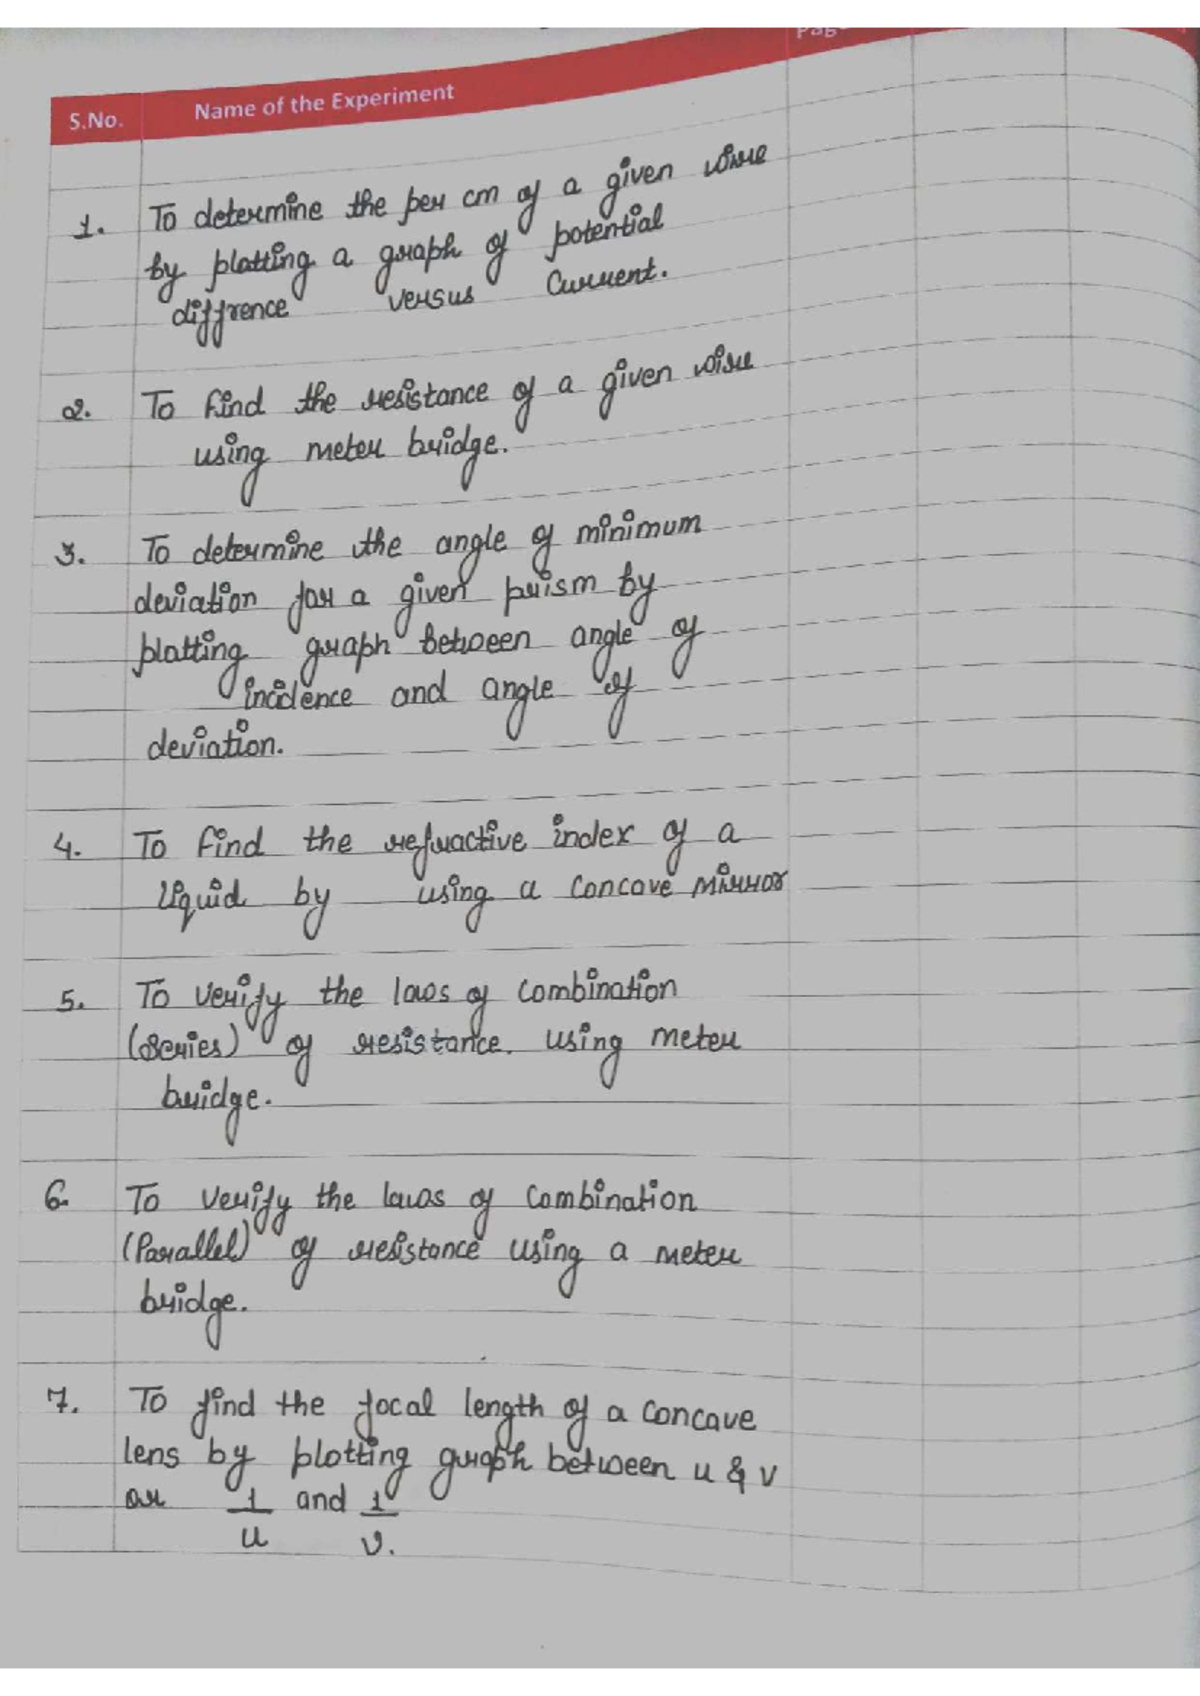 Pag
S.No. Name of the Experiment
1. To determine the per cm of a given wire
by plotting a graph of potential
diffrence versus Current.
2. To find the resistance of a given wire
using meter bridge.
3. To determine the angle of minimum
deviation for a given prism by
plotting graph between angle of
incidence and angle of
deviation.
4. To find the refractive index of a
liquid by using a concave mirror
5. To verify the laws of combination
(Series) of resistance. using meter
bridge.
6. To verify the laws of Combination
(Parallel) of resistance using a meter
bridge.
7. To find the focal length of a concave
lens by plotting graph between u & v
or 1/u and 1/v.